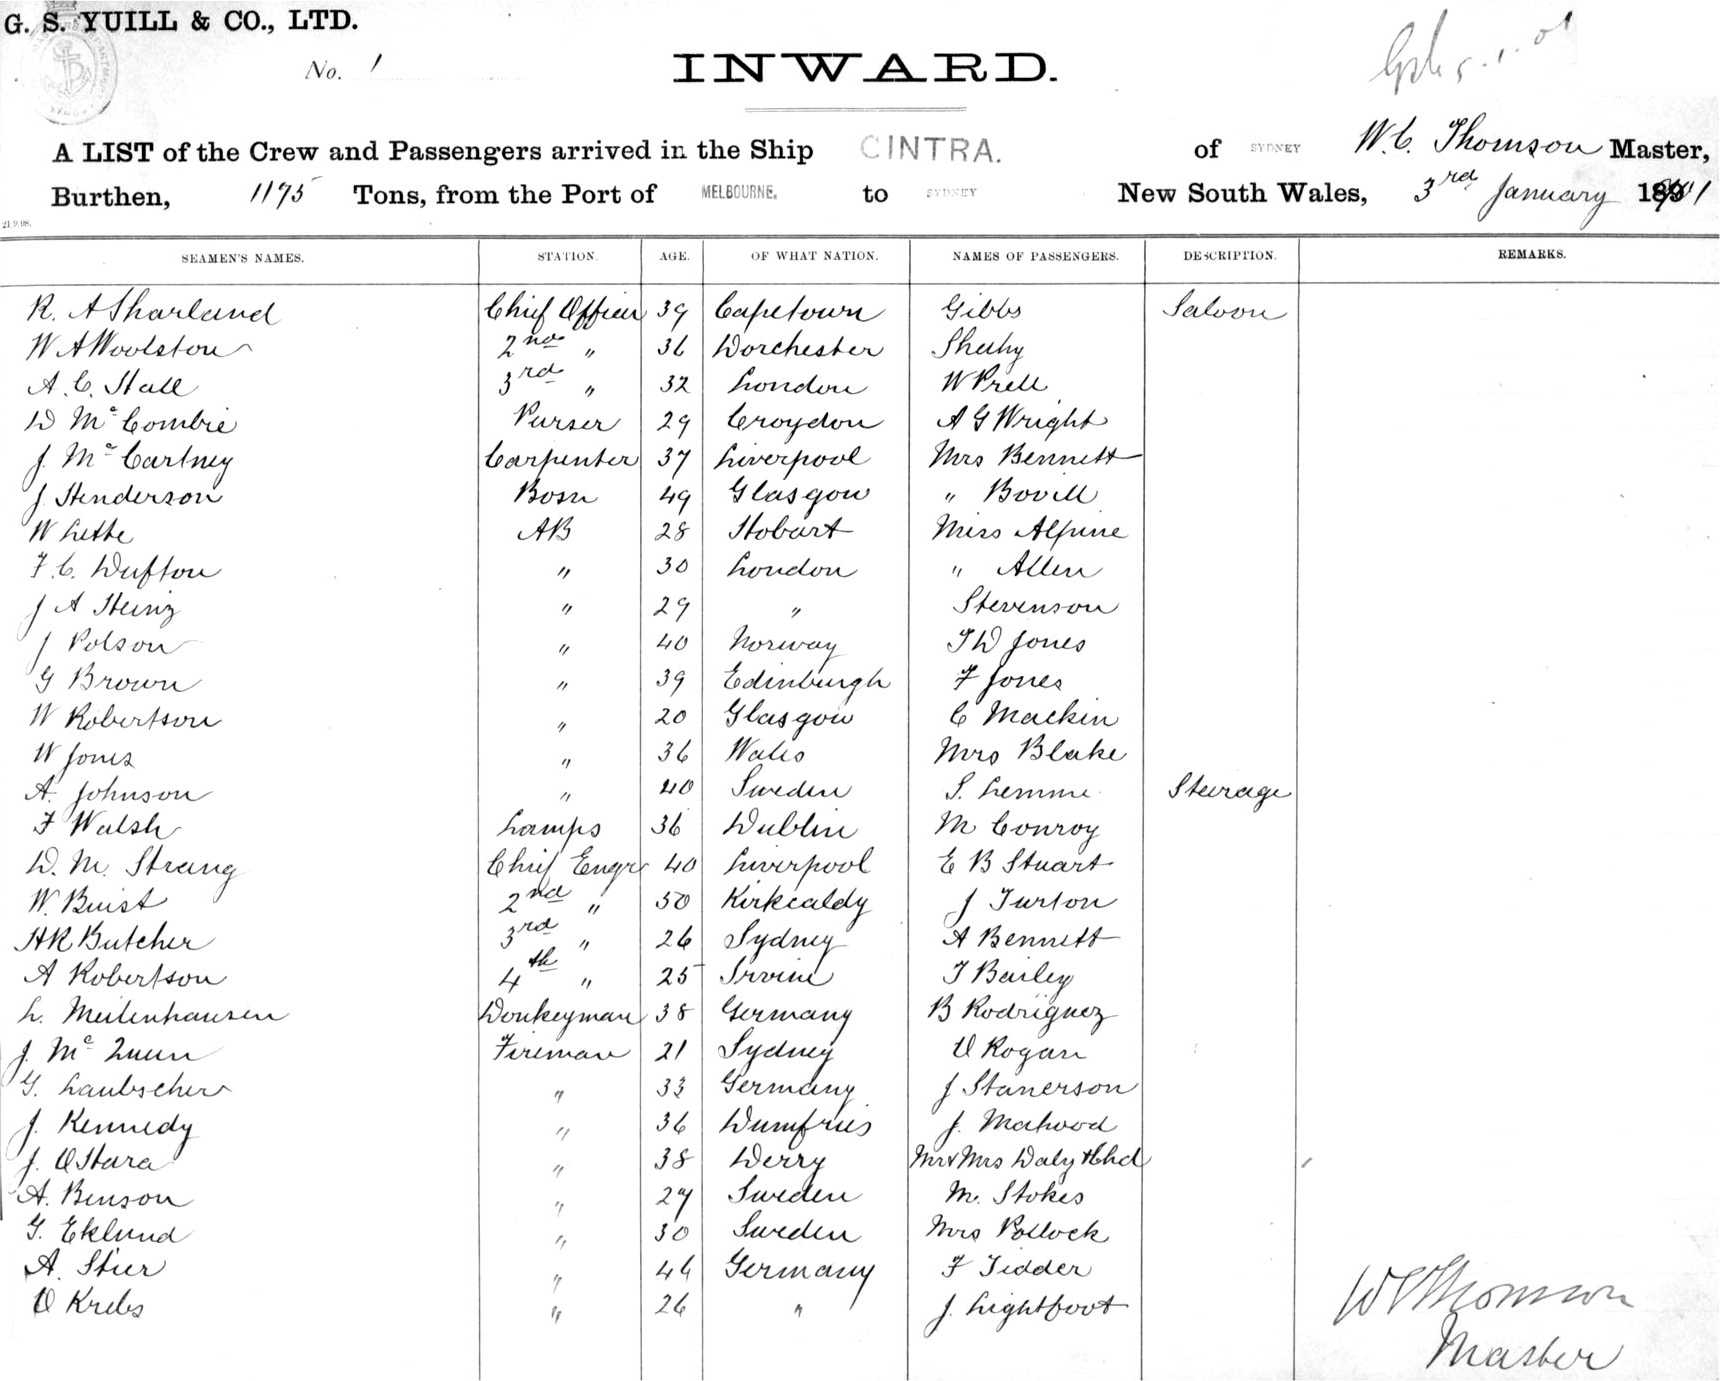 G. S. YUILL & CO., LTD.
No. 1
INWARD.
A LIST of the Crew and Passengers arrived in the Ship CINTRA. of SYDNEY W. C. Thomson Master,
Burthen, 1175 Tons, from the Port of MELBOURNE, to SYDNEY New South Wales, 3rd January 1901
21.9.98.
SEAMEN'S NAMES. STATION. AGE. OF WHAT NATION. NAMES OF PASSENGERS. DESCRIPTION. REMARKS.
R. A Sharland Chief Officer 39 Capetown Gibbs Saloon
W A Woolston 2nd " 36 Dorchester Sheehy
A. C. Hall 3rd " 32 London W Prell
D McCombie Purser 29 Croydon A G Wright
J. McCartney Carpenter 37 Liverpool Mrs Bennett
J Henderson Bosn 49 Glasgow " Bovill
W Lette AB 28 Hobart Miss Alpine
F. C. Dufton " 30 London " Allen
J A Heinz " 29 " Stevenson
J Polson " 40 Norway T D Jones
G Brown " 39 Edinburgh F Jones
W Robertson " 20 Glasgow C Mackin
W Jones " 36 Wales Mrs Blake
A. Johnson " 40 Sweden S. Lemme Steerage
F Walsh Lamps 36 Dublin M Conroy
D. M. Strang Chief Engr 40 Liverpool E B Stuart
W. Buist 2nd " 50 Kirkcaldy J Turton
H R Butcher 3rd " 26 Sydney A Bennett
A Robertson 4th " 25 Irvine T Bailey
L. Meilenhausen Donkeyman 38 Germany B Rodriguez
J. McQuinn Fireman 21 Sydney O Rogan
G. Laubscher " 33 Germany J Stanerson
J. Kennedy " 36 Dumfries J. Mahood
J. O'Hara " 38 Derry Mr & Mrs Daly & Chd
A. Benson " 27 Sweden M. Stokes
G. Eklund " 30 Sweden Mrs Pollock
A. Stier " 46 Germany F Tidder
O Krebs " 26 " J. Lightfoot
W C Thomson
Master